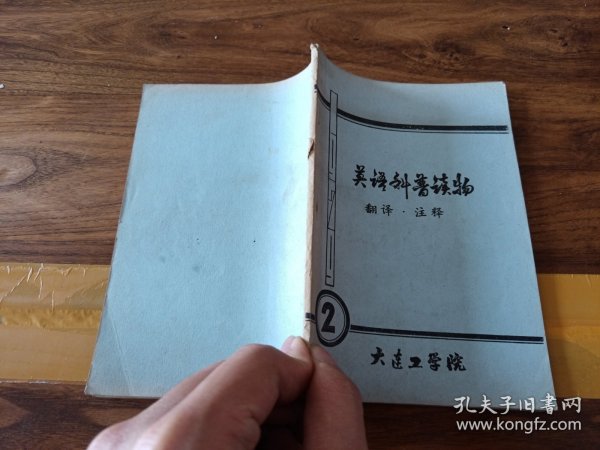 英语科普读物
翻译·注释
2
大连工学院
孔夫子旧书网
www.kongfz.com